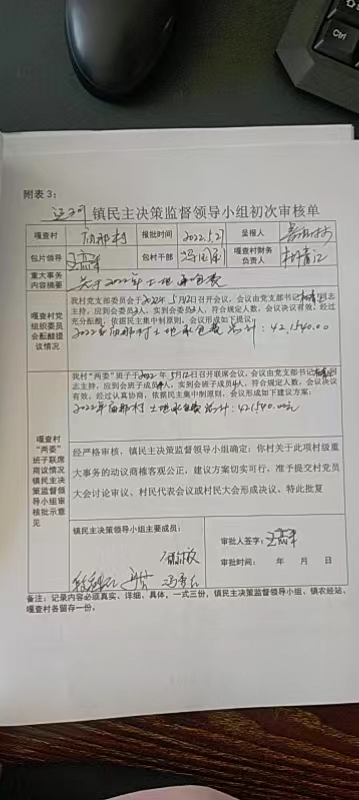 Ctrl
附表3：
镇民主决策监督领导小组初次审核单
嘎查村 村 报批时间 2022.5.21 呈报人
包片领导 包村干部 嘎查村财务负责人
重大事务内容摘要 关于2022年土地承包费
嘎查村党组织委员会酝酿提议情况
我村党支部委员会于2022年5月12日召开会议，会议由党支部书记 同志
主持，应到会委员3人，实到会委员3人，符合规定人数，会议决议有效。经过
充分酝酿，依据民主集中制原则，会议形成如下提议：
2022年 村土地承包费总计：421540.00
嘎查村“两委”班子联席商议情况
我村“两委”班子于2022年5月12日召开联席会议，会议由党支部书记 同
志主持，应到会班子成员4人，实到会班子成员4人，符合规定人数，会议决议
有效，经过认真协商，依据民主集中制原则，会议形成如下建议方案：
2022年 村土地承包费总计：421540.00元
镇民主决策监督领导小组审核批示意见
经严格审核，镇民主决策监督领导小组确定：你村关于此项村级重
大事务的动议商榷客观公正，建议方案切实可行，准予提交村党员
大会讨论审议、村民代表会议或村民大会形成决议。特此批复
镇民主决策领导小组主要成员：
审批人签字：
审批时间： 年 月 日
备注：记录内容必须真实、详细、具体，一式三份，镇民主决策监督领导小组、镇农经站、
嘎查村各留存一份。